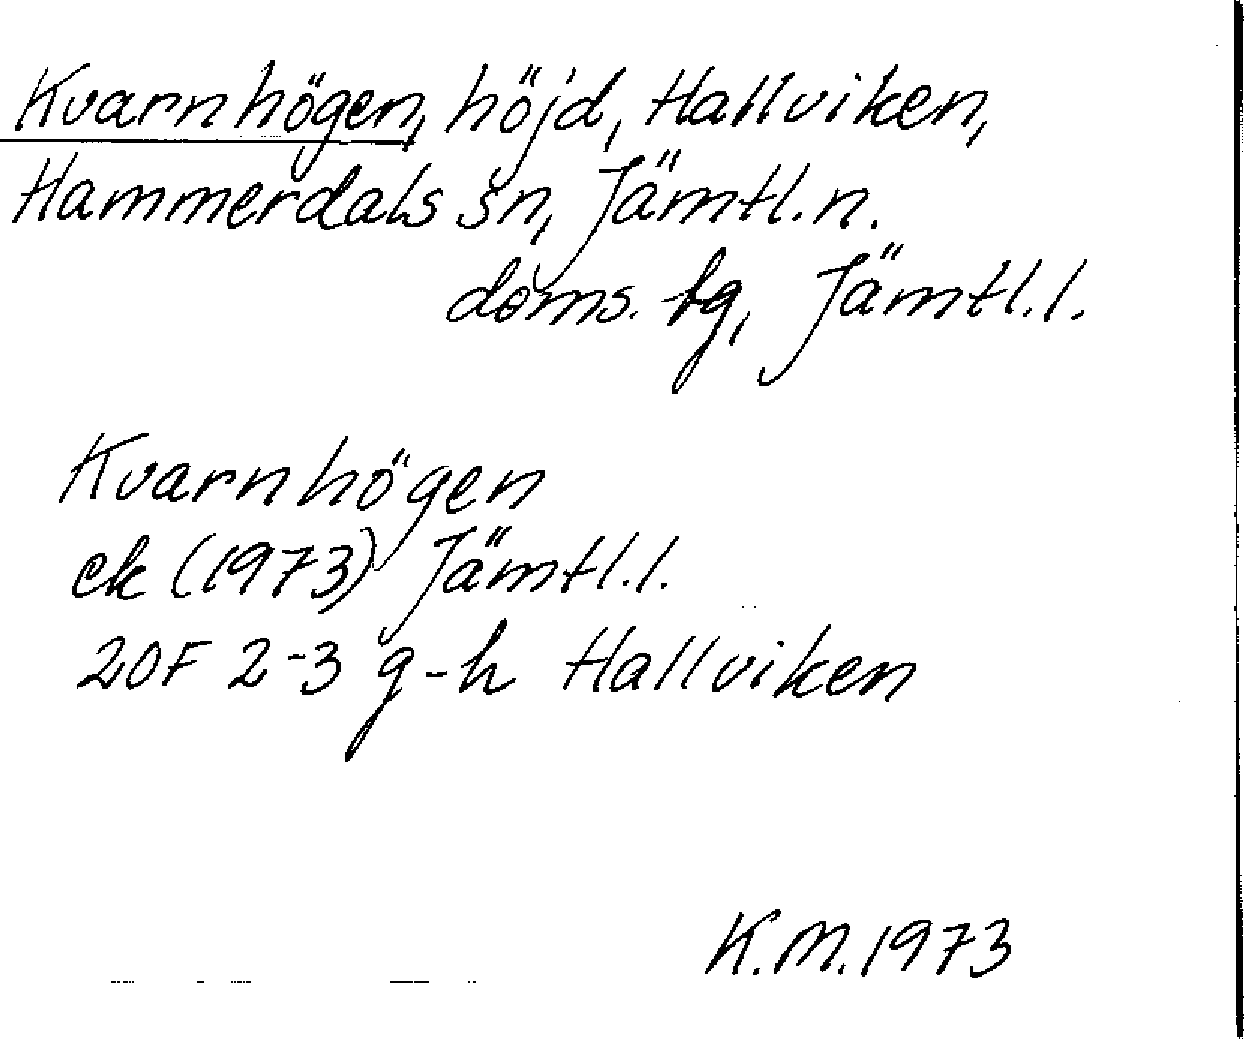 Kvarnhögen, höjd, Hallviken,
Hammerdals sn, Jämtl. n.
doms. tg, Jämtl. l.
Kvarnhögen
ek (1973) Jämtl. l.
20F 2-3 g-h Hallviken
K.M. 1973